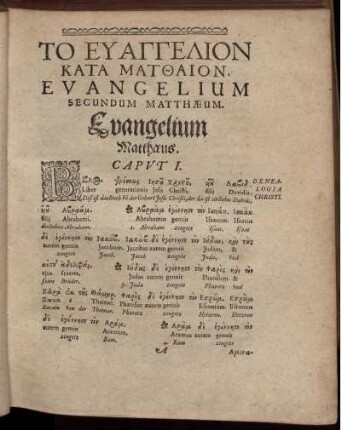 ΤΟ ΕΥΑΓΓΕΛΙΟΝ
ΚΑΤΑ ΜΑΤΘΑΙΟΝ.
EVANGELIUM
SECUNDUM MATTHÆUM.
Evangelium
Matthæus.
CAPVT I.
Βίβλ⊕ γενέσεως Ἰησοῦ Χριστοῦ, υἱοῦ Δαυὶδ,
Liber generationis Jesu Christi, filij Davidis,
GENEA-
LOGIA
CHRISTI.
Diß ist das Buch der Geburt Jesu Christi, der da ist ein Sohn Davids,
υἱοῦ Ἀβραάμ. Ἀβραὰμ ἐγέννησε τὸν Ἰσαάκ. Ἰσαὰκ
filij Abrahami. Abraham autem genuit Isaacum. Isaacus
des Sohns Abraham. 2. Abraham zeugete Isaac. Isaac
δὲ ἐγέννησε τὸν Ἰακώβ. Ἰακὼβ δὲ ἐγέννησε τὸν Ἰούδαν, καὶ τοὺς
autem genuit Jacobum. Jacobus autem genuit Judam, &
zeugete Jacob. Jacob zeugete Juda, und
αὐτοῦ ἀδελφούς. Ἰούδας δὲ ἐγέννησε τὸν Φαρὲς καὶ τὸν
ejus fratres. Judas autem genuit Pharesum &
seine Brüder. 3. Juda zeugete Pharez und
Ζαρὰ ἐκ τῆς Θάμαρ. Φαρὲς δὲ ἐγέννησε τὸν Ἐσρώμ. Ἐσρὼμ
Zaram è Thamar. Phares autem genuit
Saram von der Thamar. Pharez zeugete Hezron. Hezron
δὲ ἐγέννησε τὸν Ἀράμ. Ἀρὰμ δὲ ἐγέννησε τὸν
autem genuit Aramum. Aramus autem genuit
zeugete Ram. 4 Ram zeugete
A Amina-